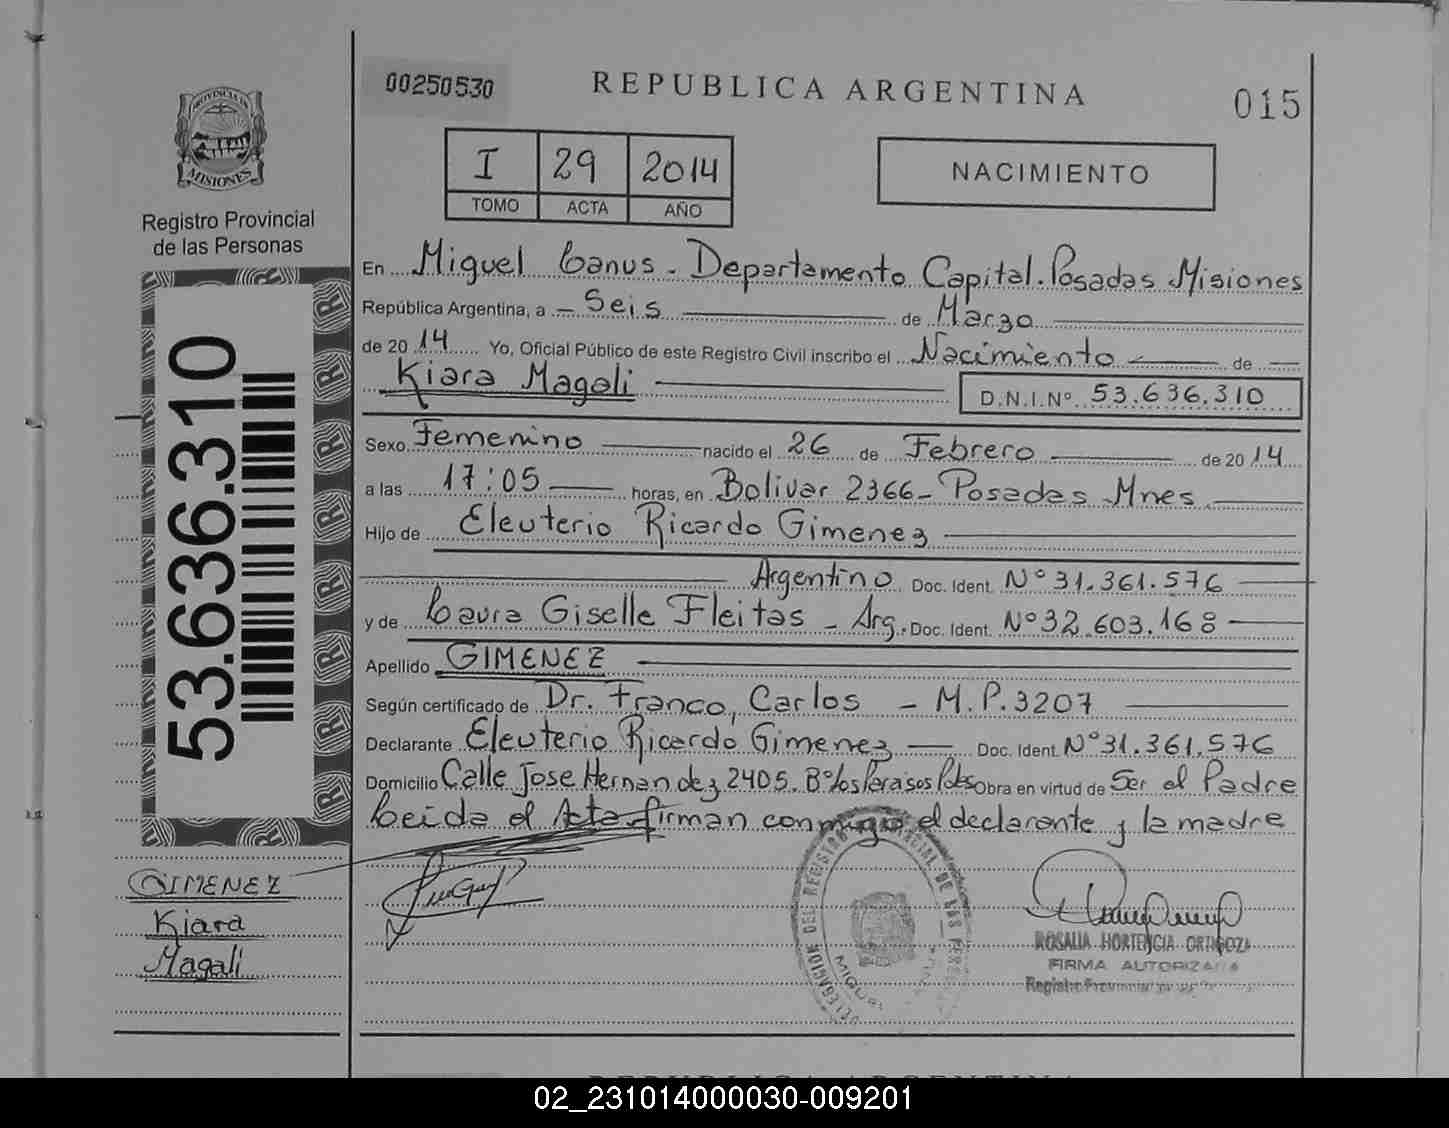 00250530
REPUBLICA ARGENTINA
015
PROVINCIA DE
MISIONES
Registro Provincial
de las Personas
I 29 2014
TOMO ACTA AÑO
NACIMIENTO
En Miguel Lanus - Departamento Capital. Posadas Misiones
República Argentina, a - Seis de Marzo
de 2014 Yo, Oficial Público de este Registro Civil inscribo el Nacimiento de
Kiara Magali
D.N.I.Nº 53.636.310
Sexo Femenino nacido el 26 de Febrero de 2014
a las 17:05 horas, en Bolivar 2366 - Posadas Mnes
Hijo de Eleuterio Ricardo Gimenez
Argentino Doc. Ident. Nº 31.361.576
y de Laura Giselle Fleitas - Arg. Doc. Ident. Nº 32.603.168
Apellido GIMENEZ
Según certificado de Dr. Franco, Carlos - M.P. 3207
Declarante Eleuterio Ricardo Gimenez Doc. Ident. Nº 31.361.576
Domicilio Calle Jose Hernandez 2405. Bº Los Paraisos Pdas Obra en virtud de Ser el Padre
Leida el Acta firman conmigo el declarante y la madre
53.636.310
GIMENEZ
Kiara
Magali
DELEGACION DEL REGISTRO PROVINCIAL DE LAS PERSONAS
MIGUEL
ROSALIA HORTENCIA ORTIGOZA
FIRMA AUTORIZADA
Registro Provincial de las
REPUBLICA ARGENTINA
02_231014000030-009201